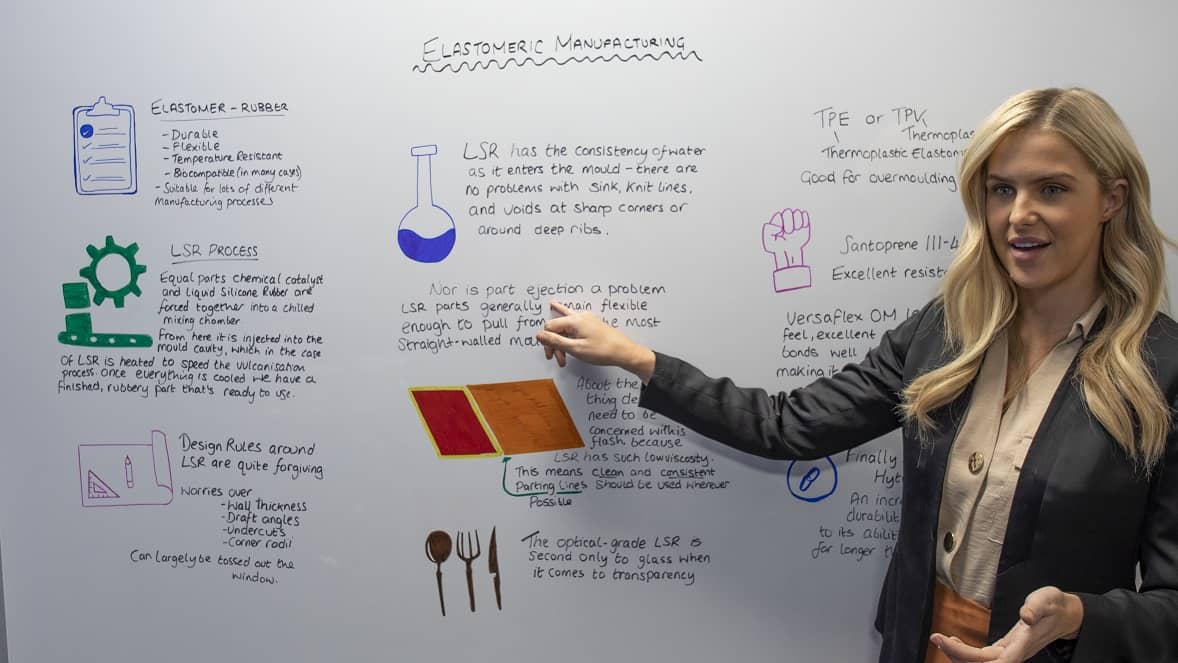 ELASTOMERIC MANUFACTURING
ELASTOMER - RUBBER
- Durable
- Flexible
- Temperature Resistant
- Biocompatible (in many cases)
- Suitable for lots of different
manufacturing processes
LSR PROCESS
Equal parts chemical catalyst
and Liquid Silicone Rubber are
forced together into a chilled
mixing chamber
From here it is injected into the
mould cavity, which in the case
of LSR is heated to speed the vulcanisation
process. Once everything is cooled we have a
finished, rubbery part that's ready to use.
Design Rules around
LSR are quite forgiving
Worries over
- Wall thickness
- Draft angles
- Undercuts
- Corner radii
Can largely be tossed out the
window.
LSR has the consistency of water
as it enters the mould - there are
no problems with sink, knit lines,
and voids at sharp corners or
around deep ribs.
Nor is part ejection a problem
LSR parts generally main flexible
enough to pull from he most
straight-walled mou
About the
thing de
need to be
concerned with is
flash because
LSR has such low viscosity.
This means clean and consistent
parting lines should be used wherever
possible
The optical-grade LSR is
second only to glass when
it comes to transparency
TPE or TPV
Thermoplas
Thermoplastic Elastom
Good for overmoulding
Santoprene 111-4
Excellent resist
Versaflex OM
feel, excellent
bonds well
making it
Finally
Hyt
An incr
durabilit
to its abilit
for longer th